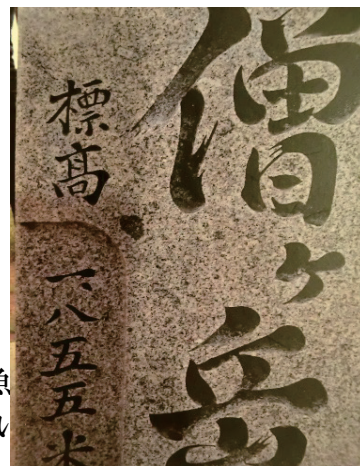 僧ヶ岳
標高
一、八五五米